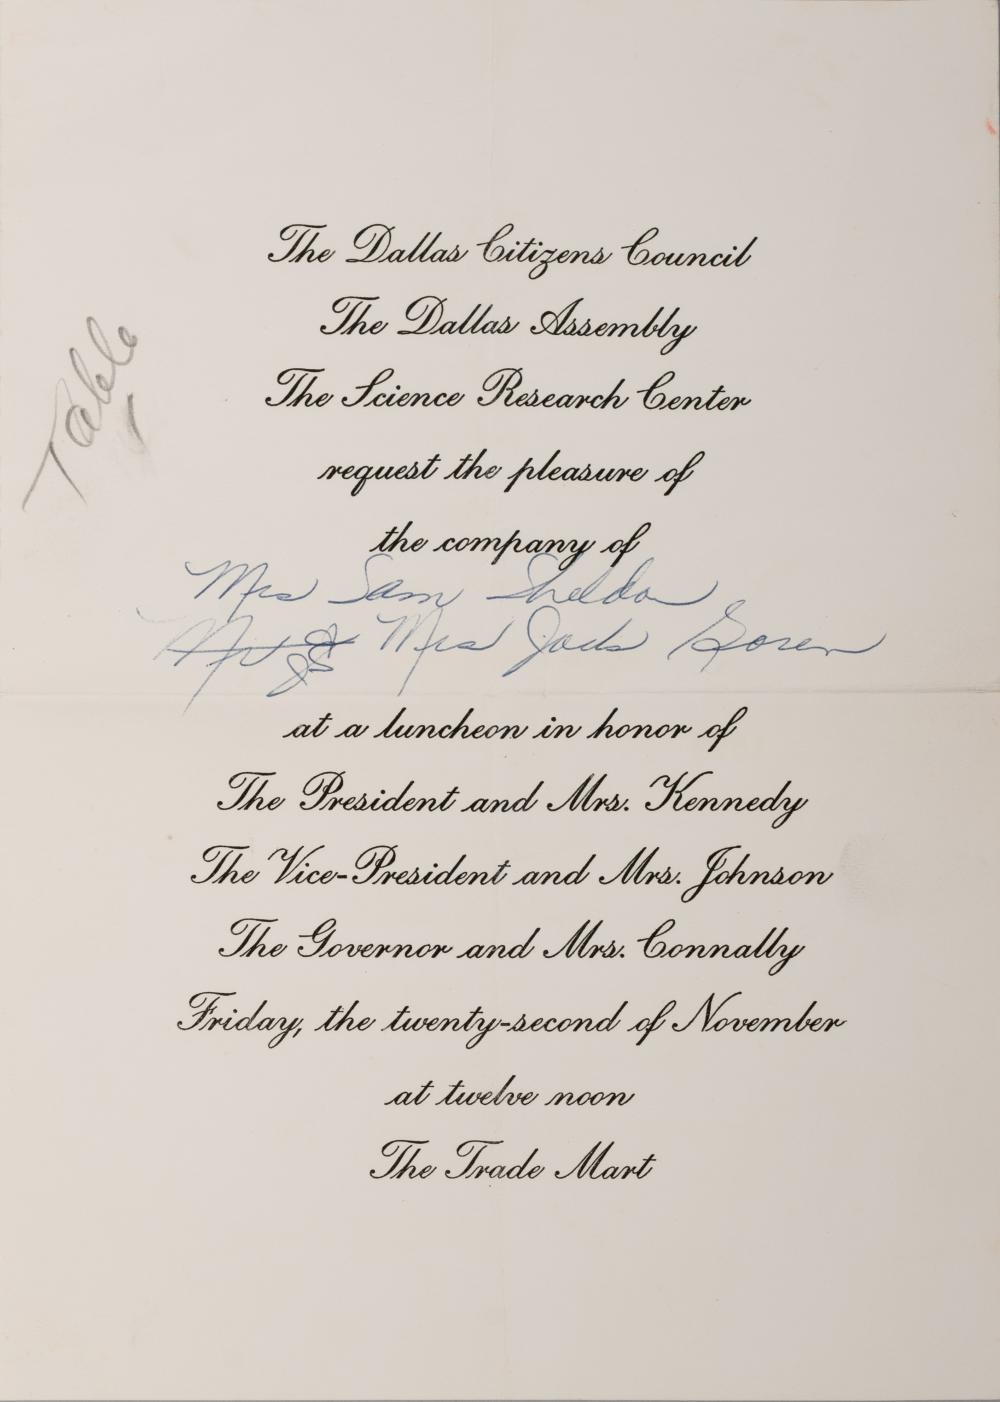 The Dallas Citizens Council
The Dallas Assembly
Table 1
The Science Research Center
request the pleasure of
the company of
Mrs Sam Sheldon
Mr & Mrs Jack Goren
at a luncheon in honor of
The President and Mrs. Kennedy
The Vice-President and Mrs. Johnson
The Governor and Mrs. Connally
Friday, the twenty-second of November
at twelve noon
The Trade Mart